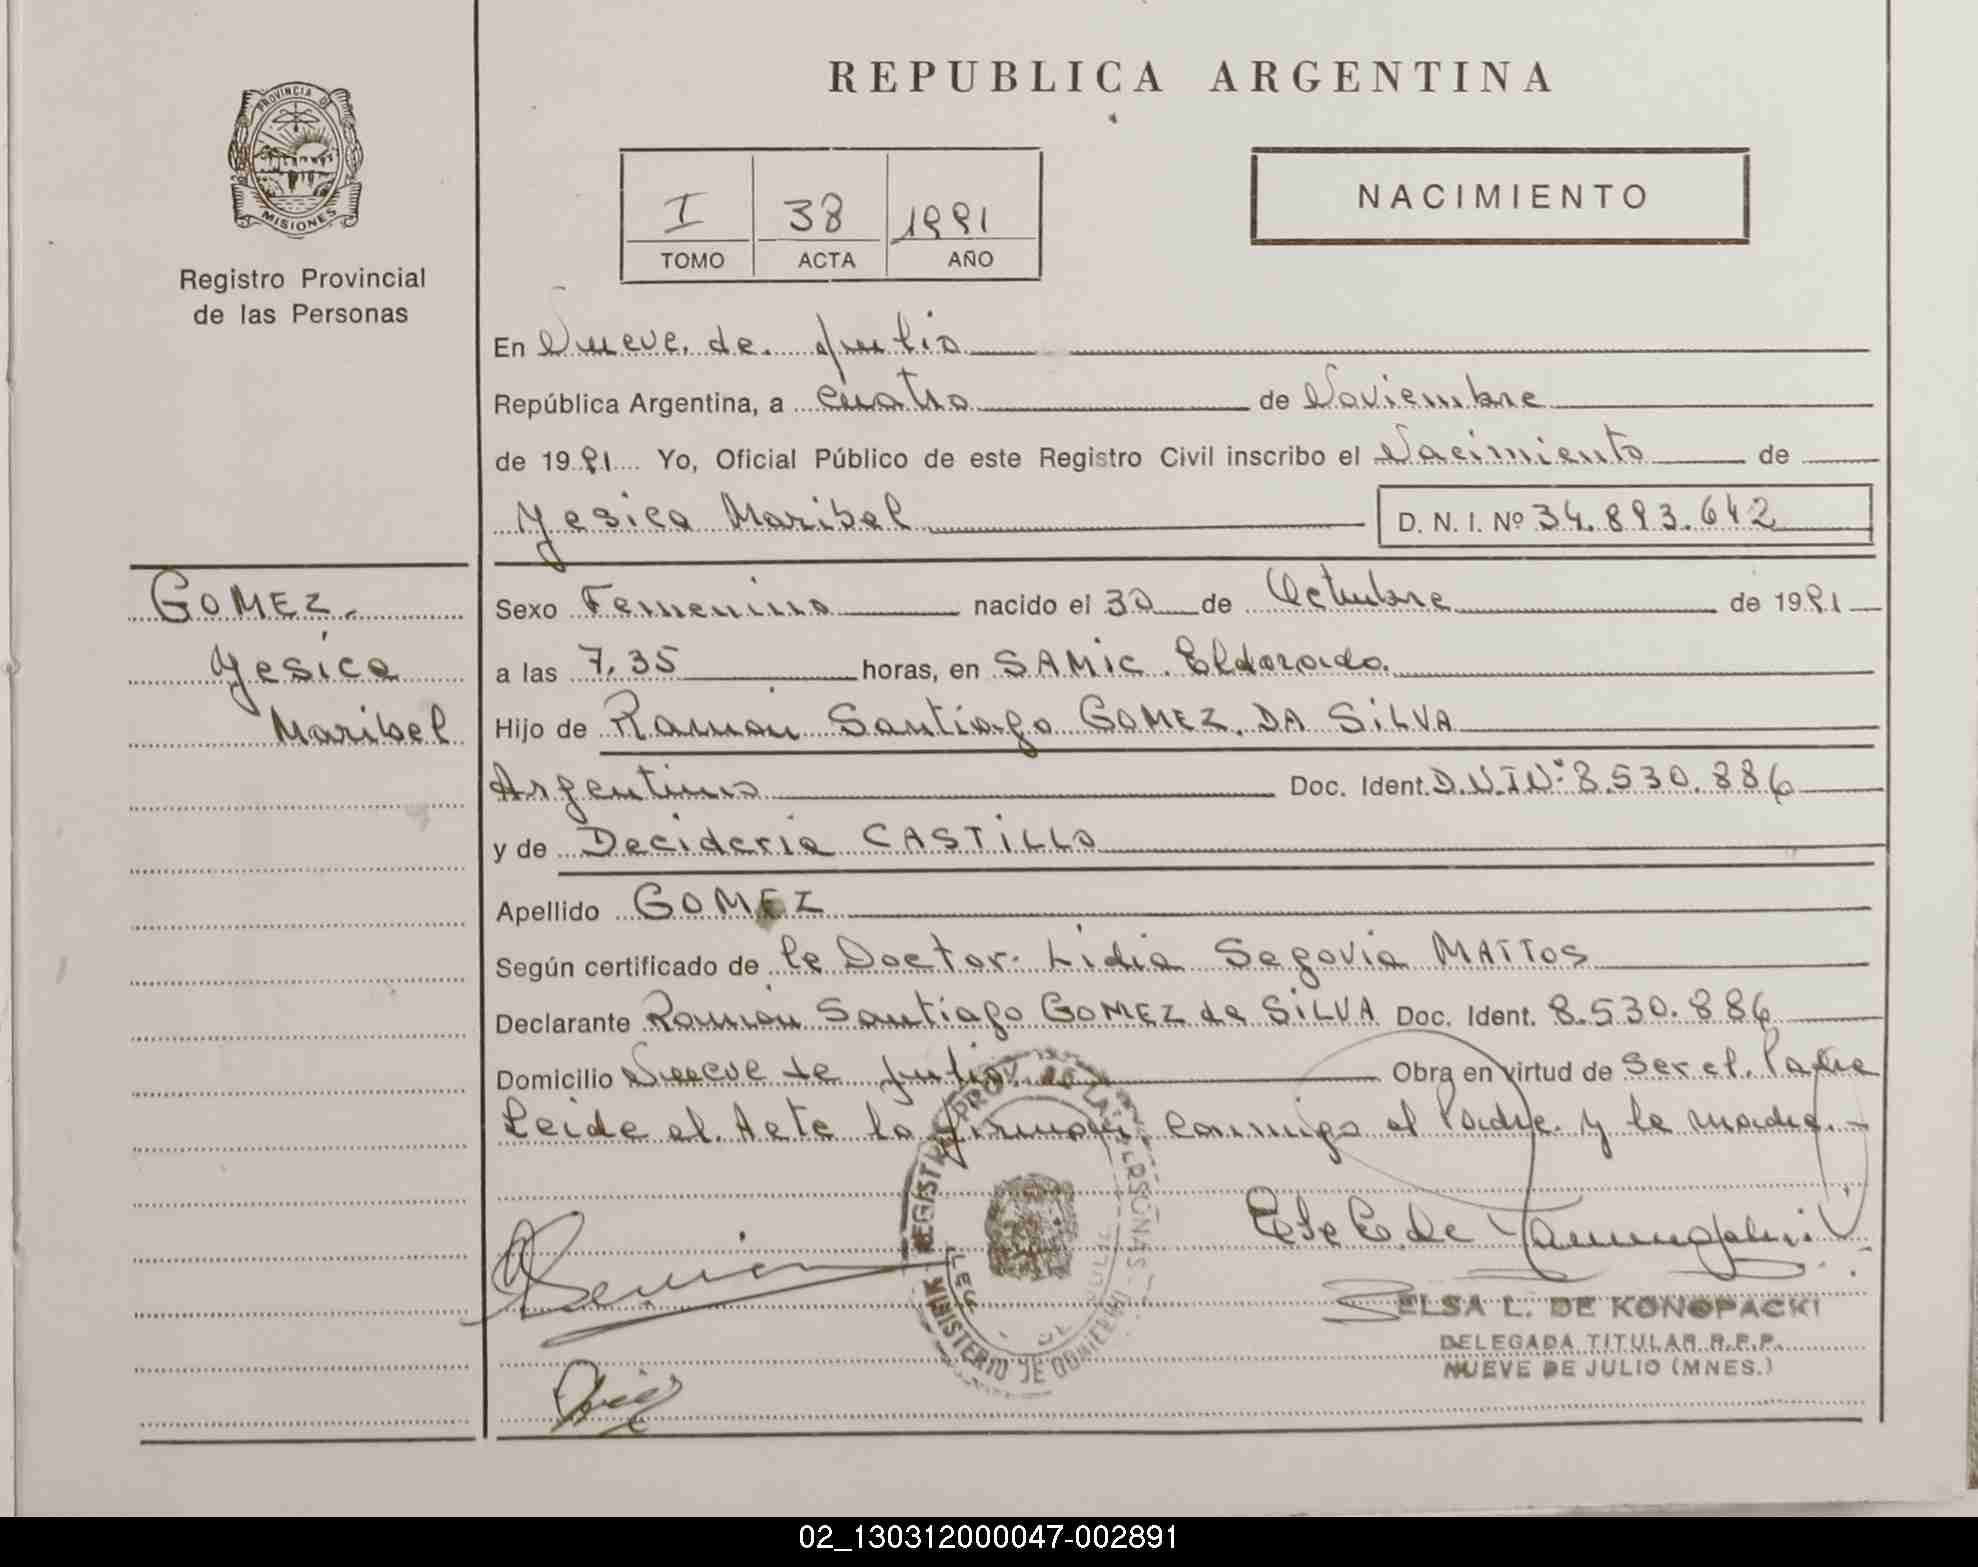 PROVINCIA DE
MISIONES
Registro Provincial
de las Personas
REPUBLICA ARGENTINA
NACIMIENTO
I 38 1991
TOMO ACTA AÑO
En Nueve de Julio
República Argentina, a cuatro de Noviembre
de 1991 Yo, Oficial Público de este Registro Civil inscribo el Nacimiento de
Yesica Maribel D. N. I. Nº 34.893.642
GOMEZ.
Yesica
Maribel
Sexo Femenino nacido el 30 de Octubre de 1991
a las 7.35 horas, en SAMIC. Eldorado.
Hijo de Ramón Santiago GOMEZ DA SILVA
Argentino Doc. Ident. D.N.I Nº 8.530.886
y de Decideria CASTILLO
Apellido GOMEZ
Según certificado de la Doctor. Lidia Segovia MATTOS
Declarante Ramón Santiago GOMEZ da SILVA Doc. Ident. 8.530.886
Domicilio Nueve de Julio Obra en virtud de ser el Padre
Leida el Acta la firman conmigo el Padre y la madre.-
REGISTRO PROV. DE LAS PERSONAS
MINISTERIO DE GOBIERNO
ELSA L. DE KONOPACKI
DELEGADA TITULAR R.P.P.
NUEVE DE JULIO (MNES.)
02_130312000047-002891